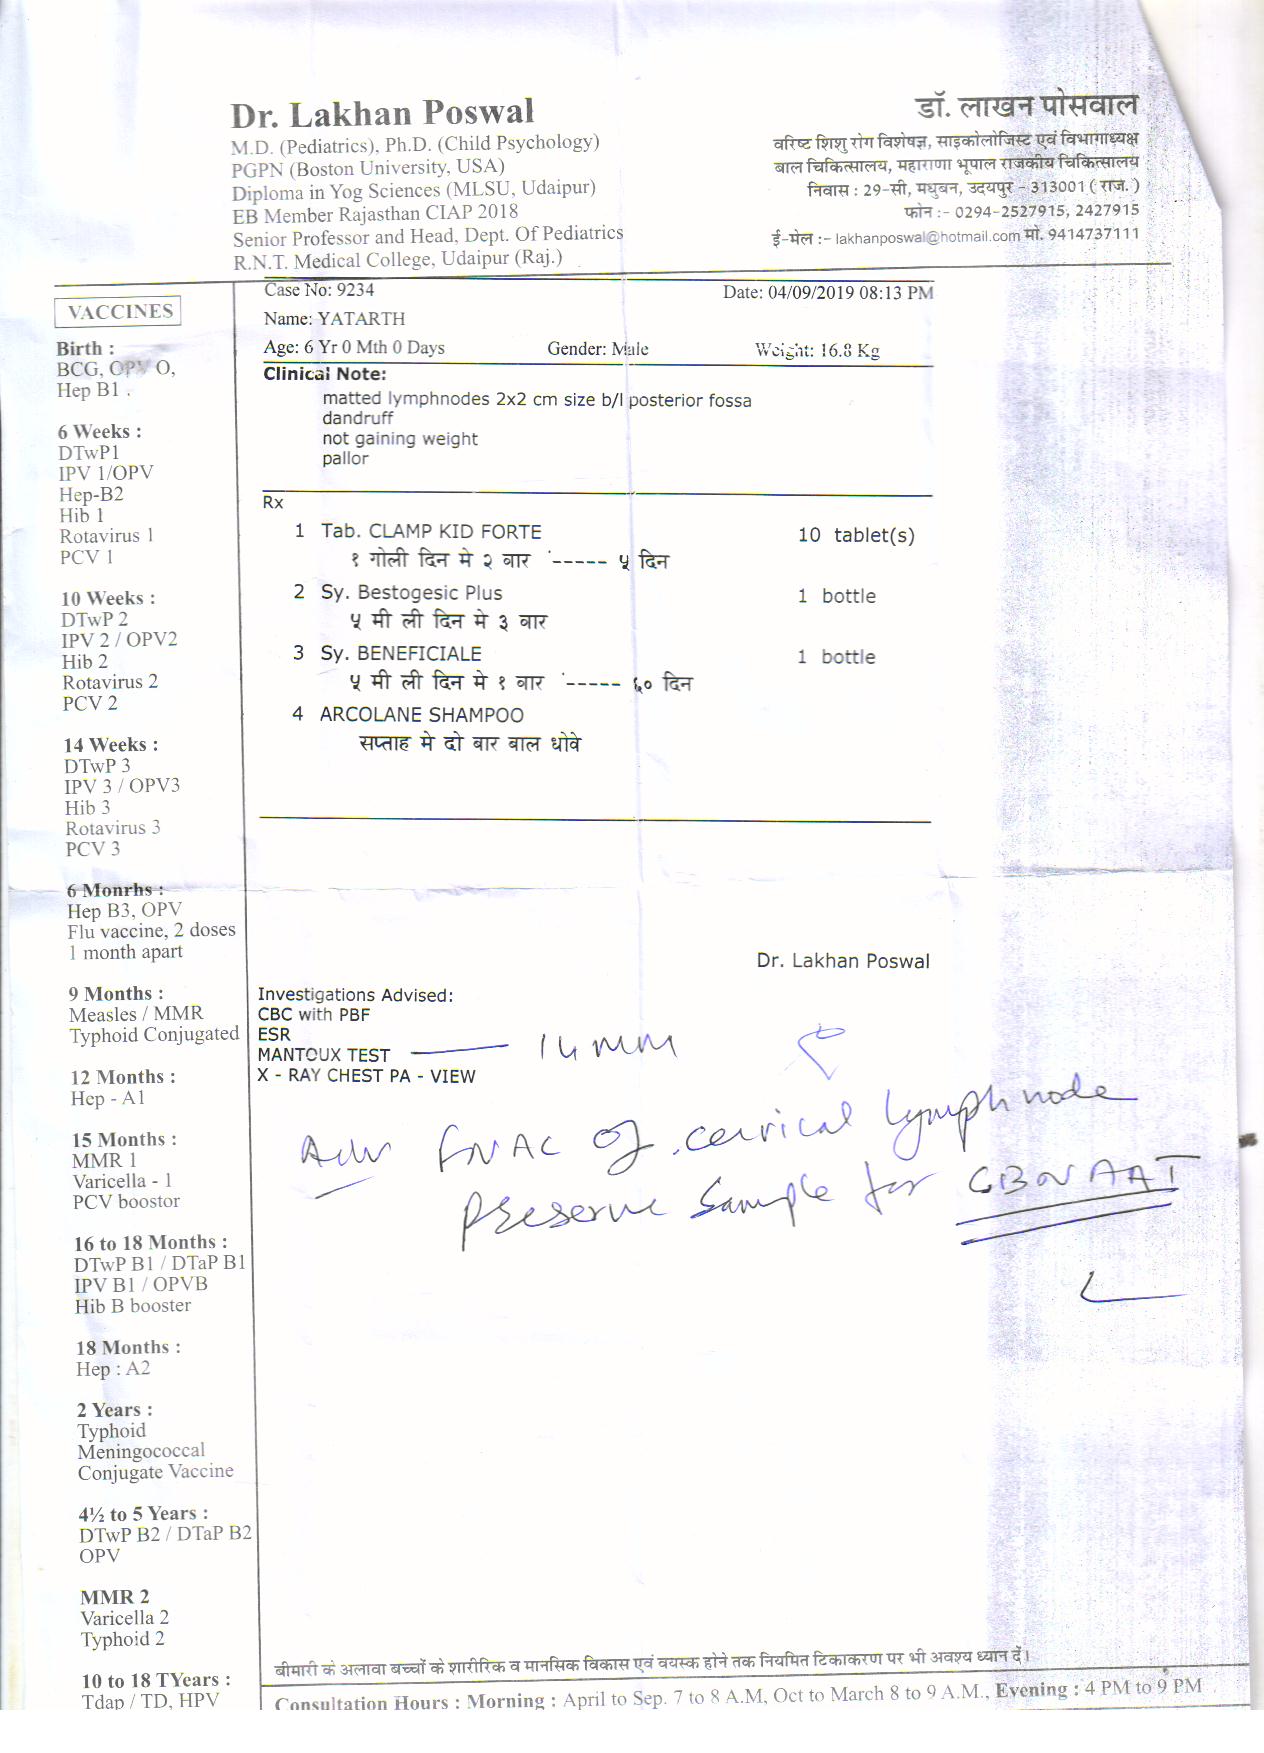 Dr. Lakhan Poswal
M.D. (Pediatrics), Ph.D. (Child Psychology)
PGPN (Boston University, USA)
Diploma in Yog Sciences (MLSU, Udaipur)
EB Member Rajasthan CIAP 2018
Senior Professor and Head, Dept. Of Pediatrics
R.N.T. Medical College, Udaipur (Raj.)
डॉ. लाखन पोसवाल
वरिष्ट शिशु रोग विशेषज्ञ, साइकोलोजिस्ट एवं विभागाध्यक्ष
बाल चिकित्सालय, महाराणा भूपाल राजकीय चिकित्सालय
निवास : 29-सी, मधुबन, उदयपुर - 313001 ( राज. )
फोन :- 0294-2527915, 2427915
ई-मेल :- lakhanposwal@hotmail.com मो. 9414737111
VACCINES
Birth :
BCG, OPV O,
Hep B1 .
6 Weeks :
DTwP1
IPV 1/OPV
Hep-B2
Hib 1
Rotavirus 1
PCV 1
10 Weeks :
DTwP 2
IPV 2 / OPV2
Hib 2
Rotavirus 2
PCV 2
14 Weeks :
DTwP 3
IPV 3 / OPV3
Hib 3
Rotavirus 3
PCV 3
6 Monrhs :
Hep B3, OPV
Flu vaccine, 2 doses
1 month apart
9 Months :
Measles / MMR
Typhoid Conjugated
12 Months :
Hep - A1
15 Months :
MMR 1
Varicella - 1
PCV boostor
16 to 18 Months :
DTwP B1 / DTaP B1
IPV B1 / OPVB
Hib B booster
18 Months :
Hep : A2
2 Years :
Typhoid
Meningococcal
Conjugate Vaccine
4½ to 5 Years :
DTwP B2 / DTaP B2
OPV
MMR 2
Varicella 2
Typhoid 2
10 to 18 TYears :
Tdap / TD, HPV
Case No: 9234 Date: 04/09/2019 08:13 PM
Name: YATARTH
Age: 6 Yr 0 Mth 0 Days Gender: Male Weight: 16.8 Kg
Clinical Note:
matted lymphnodes 2x2 cm size b/l posterior fossa
dandruff
not gaining weight
pallor
Rx
1 Tab. CLAMP KID FORTE 10 tablet(s)
१ गोली दिन मे २ वार ----- ५ दिन
2 Sy. Bestogesic Plus 1 bottle
५ मी ली दिन मे ३ वार
3 Sy. BENEFICIALE 1 bottle
५ मी ली दिन मे १ वार ----- ६० दिन
4 ARCOLANE SHAMPOO
सप्ताह मे दो बार बाल धोवे
Dr. Lakhan Poswal
Investigations Advised:
CBC with PBF
ESR
MANTOUX TEST — 14 mm
X - RAY CHEST PA - VIEW
Adv FNAC of cervical lymphnode
preserve sample for CBNAAT
बीमारी के अलावा बच्चों के शारीरिक व मानसिक विकास एवं वयस्क होने तक नियमित टिकाकरण पर भी अवश्य ध्यान दें।
Consultation Hours : Morning : April to Sep. 7 to 8 A.M, Oct to March 8 to 9 A.M., Evening : 4 PM to 9 PM